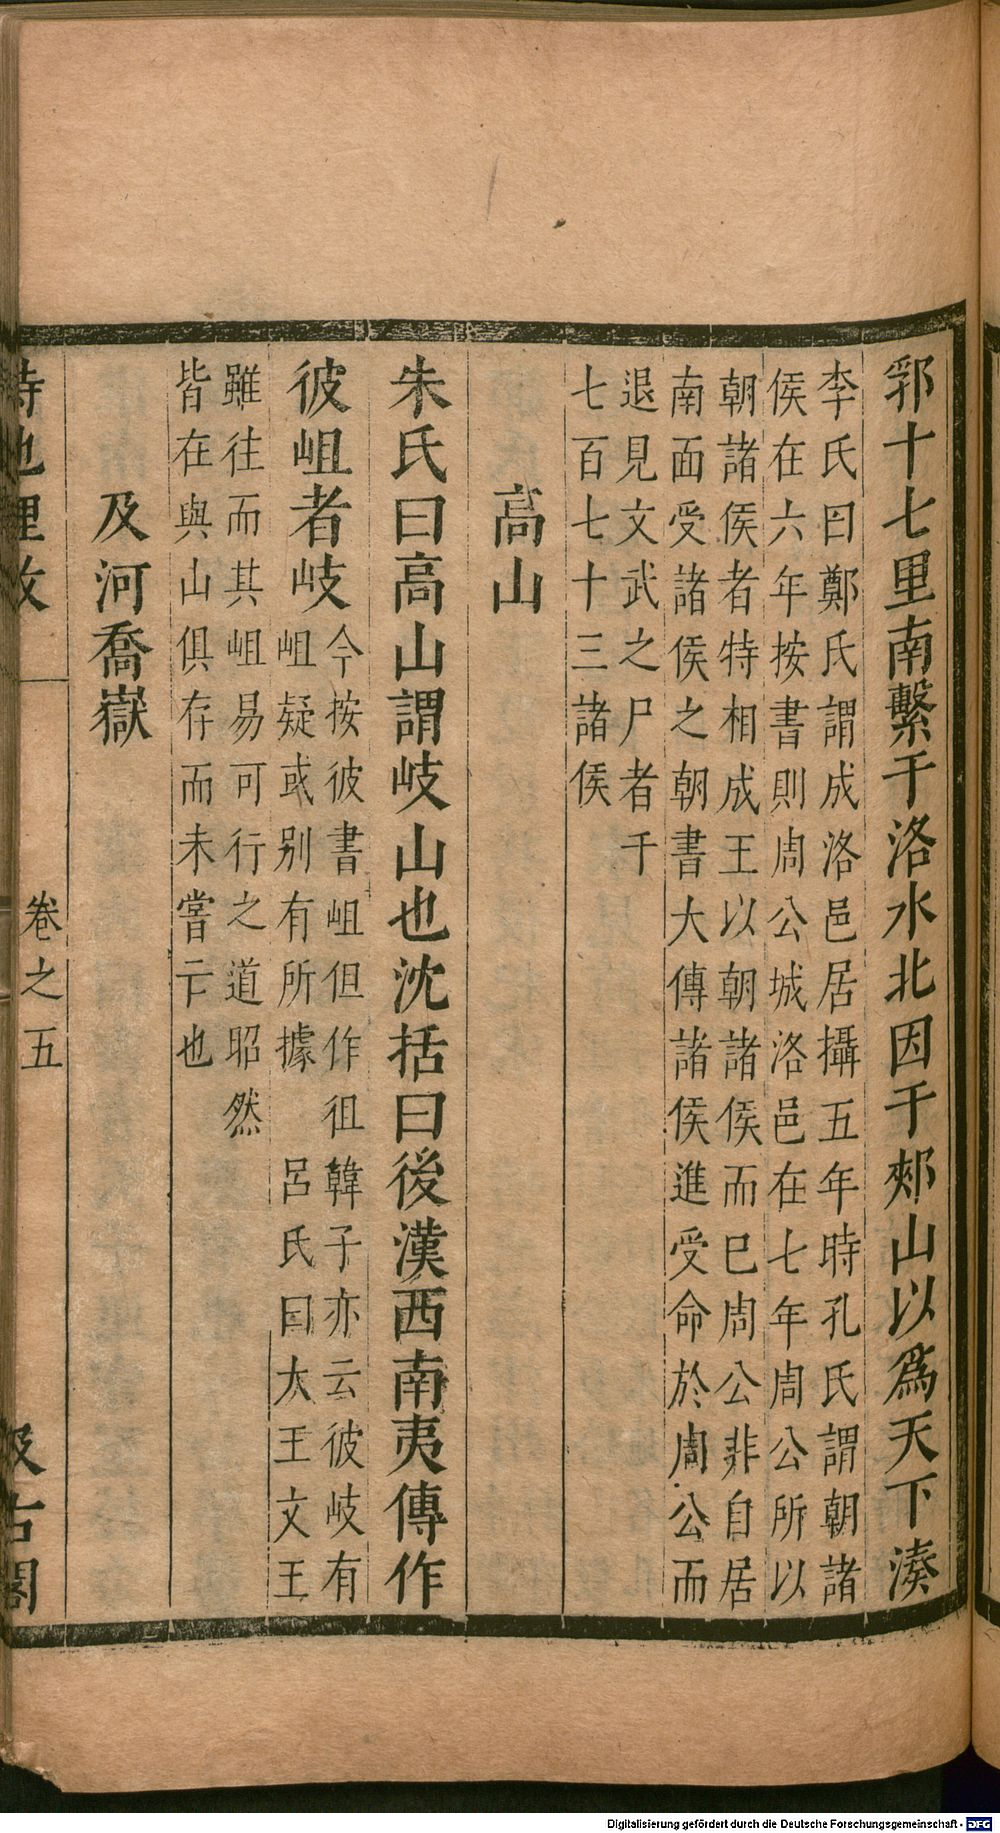 郛十七里南繫于洛水北因于郟山以爲天下湊
李氏曰鄭氏謂成洛邑居攝五年時孔氏謂朝諸
侯在六年按書則周公城洛邑在七年周公所以
朝諸侯者特相成王以朝諸侯而已周公非自居
南面受諸侯之朝書大傳諸侯進受命於周公而
退見文武之尸者千
七百七十三諸侯
高山
朱氏曰高山謂岐山也沈括曰後漢西南夷傳作
彼岨者岐
今按彼書岨但作徂韓子亦云彼岐有
岨疑或别有所據 呂氏曰大王文王
雖往而其岨易可行之道昭然
皆在與山俱存而未嘗亡也
及河喬嶽
詩地理攷 卷之五 汲古閣
Digitalisierung gefördert durch die Deutsche Forschungsgemeinschaft - DFG